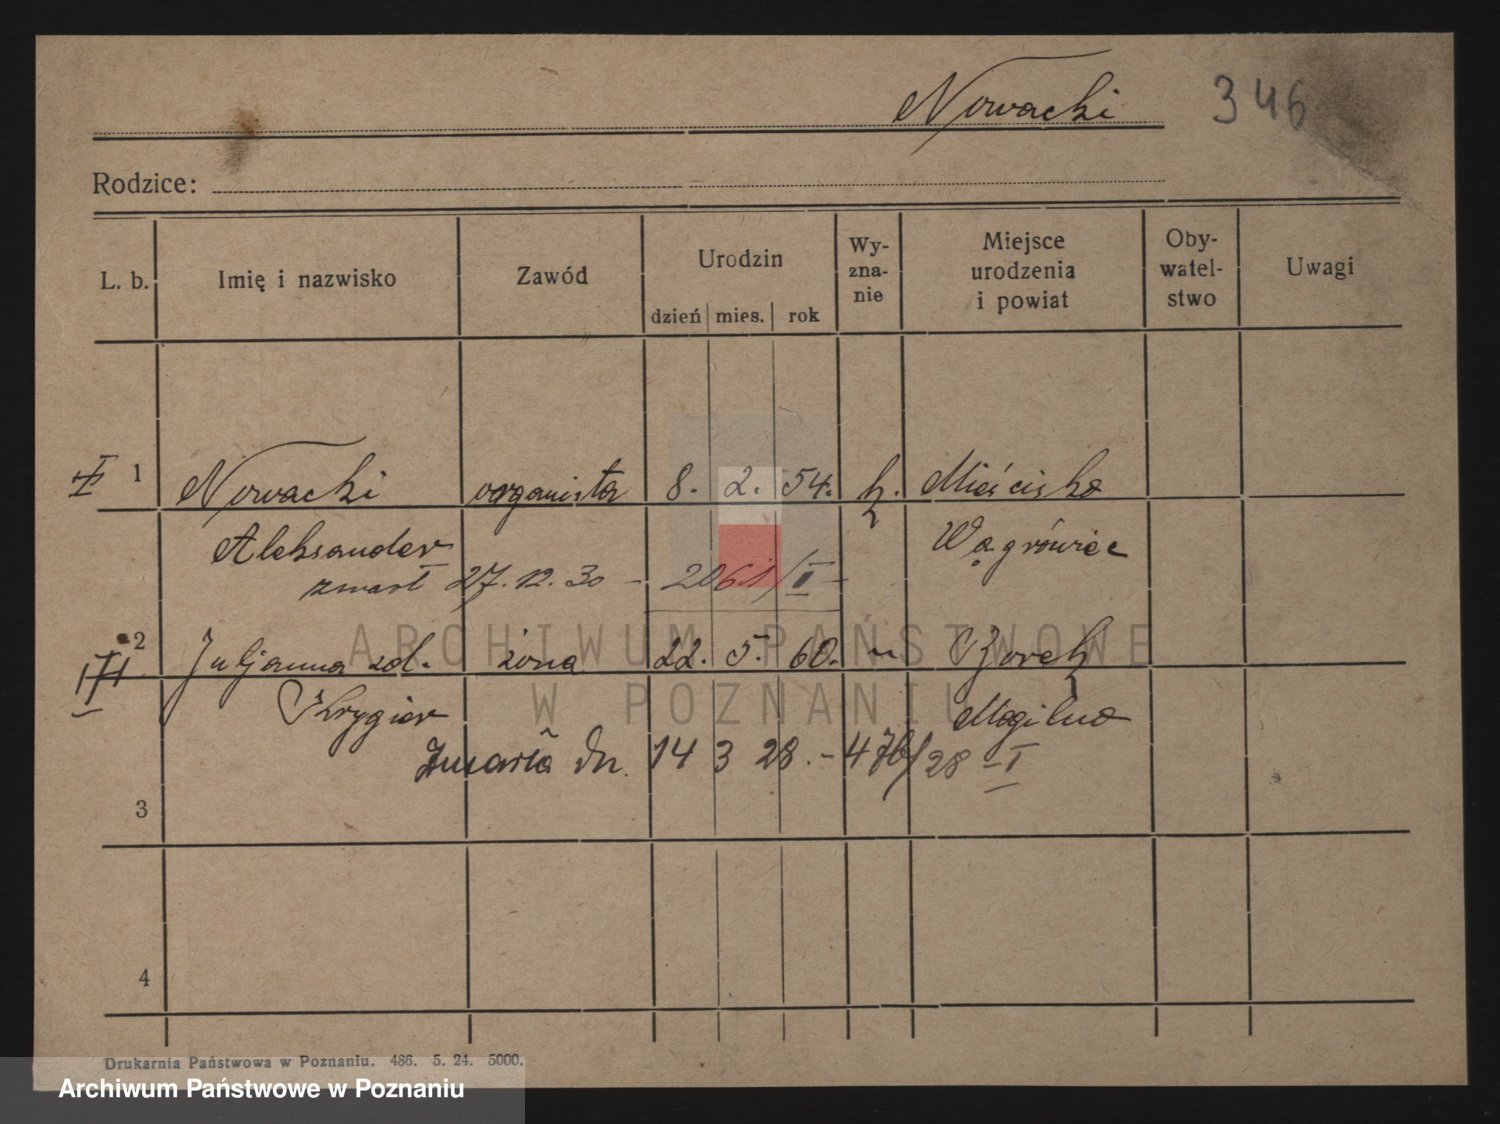 Nowacki 346
Rodzice:
L. b. Imię i nazwisko Zawód Urodzin dzień mies. rok Wy-zna-nie Miejsce urodzenia i powiat Oby-watel-stwo Uwagi
1 Nowacki organista 8. 2. 54. k. Mieścisko
Aleksander Wągrówiec
zmarł 27.12.30 – 2061/II –
2 Juljanna zd. żona 22. 5. 60. " 
Krygier Mogilno
Zmarła dn. 14 3 28. – 476/28 – I
3
4
Drukarnia Państwowa w Poznaniu. 486. 5. 24. 5000.
ARCHIWUM PAŃSTWOWE
W POZNANIU
Archiwum Państwowe w Poznaniu